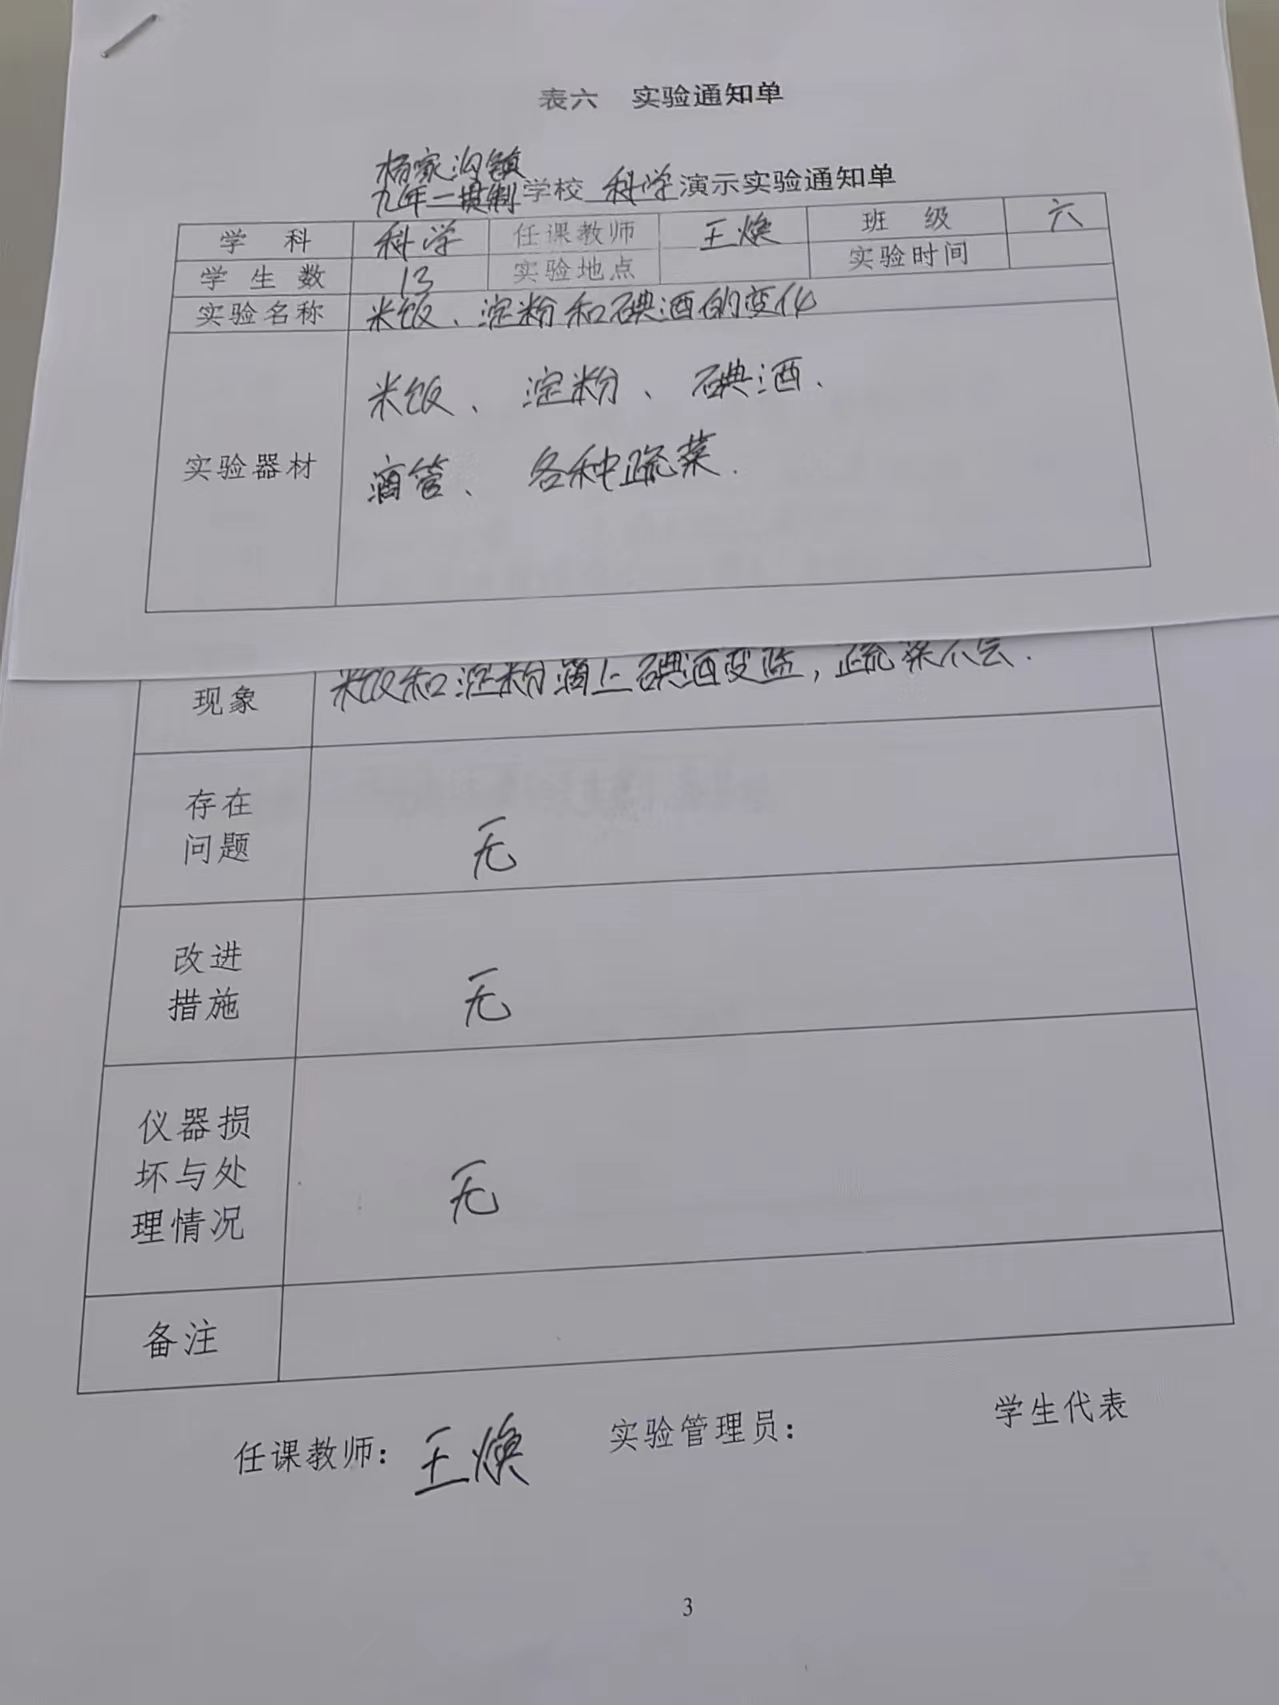 表六 实验通知单
杨家沟镇
九年一贯制学校 科学演示实验通知单
学 科 科学 任课教师 王焕 班 级 六
学生数 13 实验地点 实验时间
实验名称 米饭、淀粉和碘酒的变化
米饭、淀粉、碘酒.
实验器材
滴管、各种蔬菜.
现象 米饭和淀粉滴上碘酒变蓝,蔬菜不会.
存在
问题
无
改进
措施
无
仪器损
坏与处
理情况
无
备注
任课教师:王焕 实验管理员: 学生代表
3